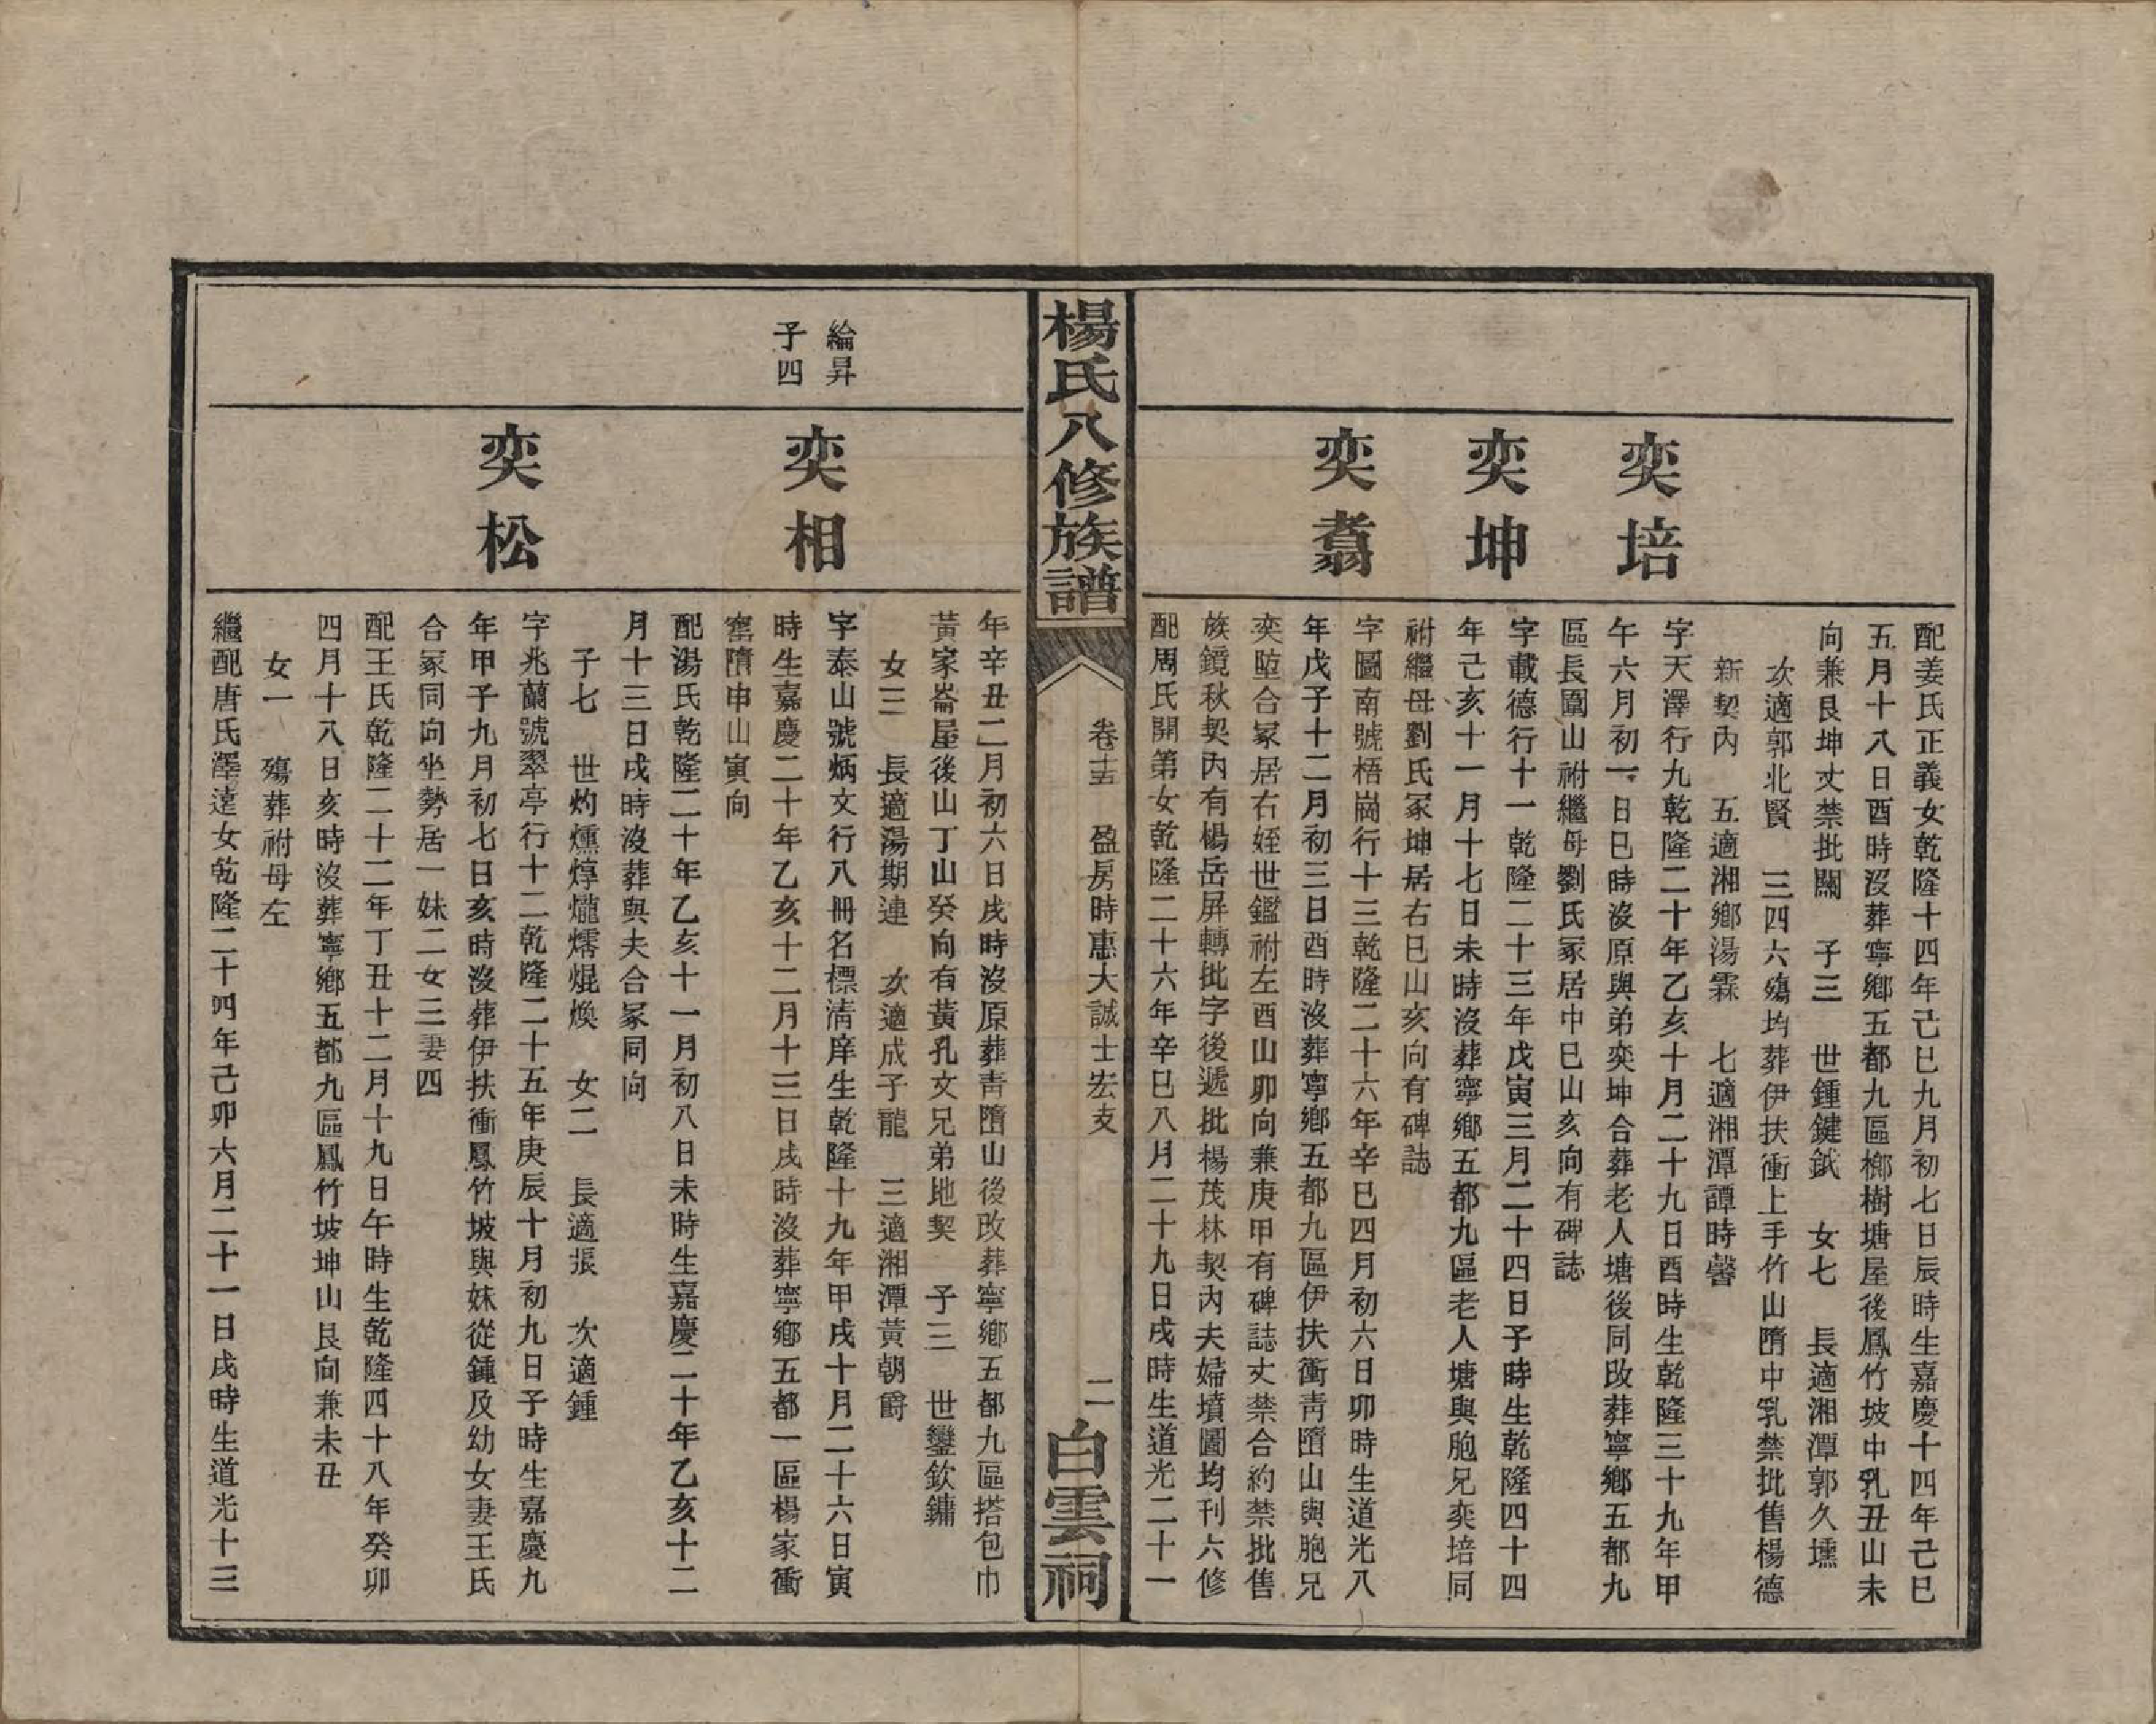 配姜氏正義女乾隆十四年己巳九月初七日辰時生嘉慶十四年己巳
五月十八日酉時沒葬寧鄉五都九區榔樹塘屋後鳳竹坡中乳丑山未
向兼艮坤丈禁批關　子三　世鍾鍵鉞　女七　長適湘潭郭久壎
次適郭北賢　三四六殤均葬伊扶衝上手竹山隋中乳禁批售楊德
新契內　五適湘鄉湯霖　七適湘潭譚時馨
奕培
字天澤行九乾隆二十年乙亥十月二十九日酉時生乾隆三十九年甲
午六月初一日巳時沒原與弟奕坤合葬老人塘後同改葬寧鄉五都九
區長圍山祔繼母劉氏冢居中巳山亥向有碑誌
奕坤
字載德行十一乾隆二十三年戊寅三月二十四日子時生乾隆四十四
年己亥十一月十七日未時沒葬寧鄉五都九區老人塘與胞兄奕培同
祔繼母劉氏冢坤居右巳山亥向有碑誌
奕翥
字圖南號梧崗行十三乾隆二十六年辛巳四月初六日卯時生道光八
年戊子十二月初三日酉時沒葬寧鄉五都九區伊扶衝靑隋山與胞兄
奕塰合冢居右姪世鑑祔左酉山卯向兼庚甲有碑誌丈禁合約禁批售
族鏡秋契內有楊岳屏轉批字後遞批楊茂林契內夫婦墳圖均刊六修
配周氏開第女乾隆二十六年辛巳八月二十九日戌時生道光二十一
楊氏八修族譜
卷十五　盈房時惠大誠士宏支
二
白雲祠
年辛丑二月初六日戌時沒原葬靑隋山後改葬寧鄉五都九區搭包巾
黃家崙屋後山丁山癸向有黃孔文兄弟地契　子三　世鑾欽鏞
女三　長適湯期連　次適成子龍　三適湘潭黃朝爵
綸昇
子四
奕相
字泰山號炳文行八冊名標清庠生乾隆十九年甲戌十月二十六日寅
時生嘉慶二十年乙亥十二月十三日戌時沒葬寧鄉五都一區楊家衝
窰隋申山寅向
配湯氏乾隆二十年乙亥十一月初八日未時生嘉慶二十年乙亥十二
月十三日戌時沒葬與夫合冢同向
子七　世灼燻焞爖燸焜煥　女二　長適張　次適鍾
奕松
字兆蘭號翠亭行十二乾隆二十五年庚辰十月初九日子時生嘉慶九
年甲子九月初七日亥時沒葬伊扶衝鳳竹坡與妹從鍾及幼女妻王氏
合冢同向坐勢居一妹二女三妻四
配王氏乾隆二十二年丁丑十二月十九日午時生乾隆四十八年癸卯
四月十八日亥時沒葬寧鄉五都九區鳳竹坡坤山艮向兼未丑
女一　殤葬祔母左
繼配唐氏澤遠女乾隆二十四年己卯六月二十一日戌時生道光十三